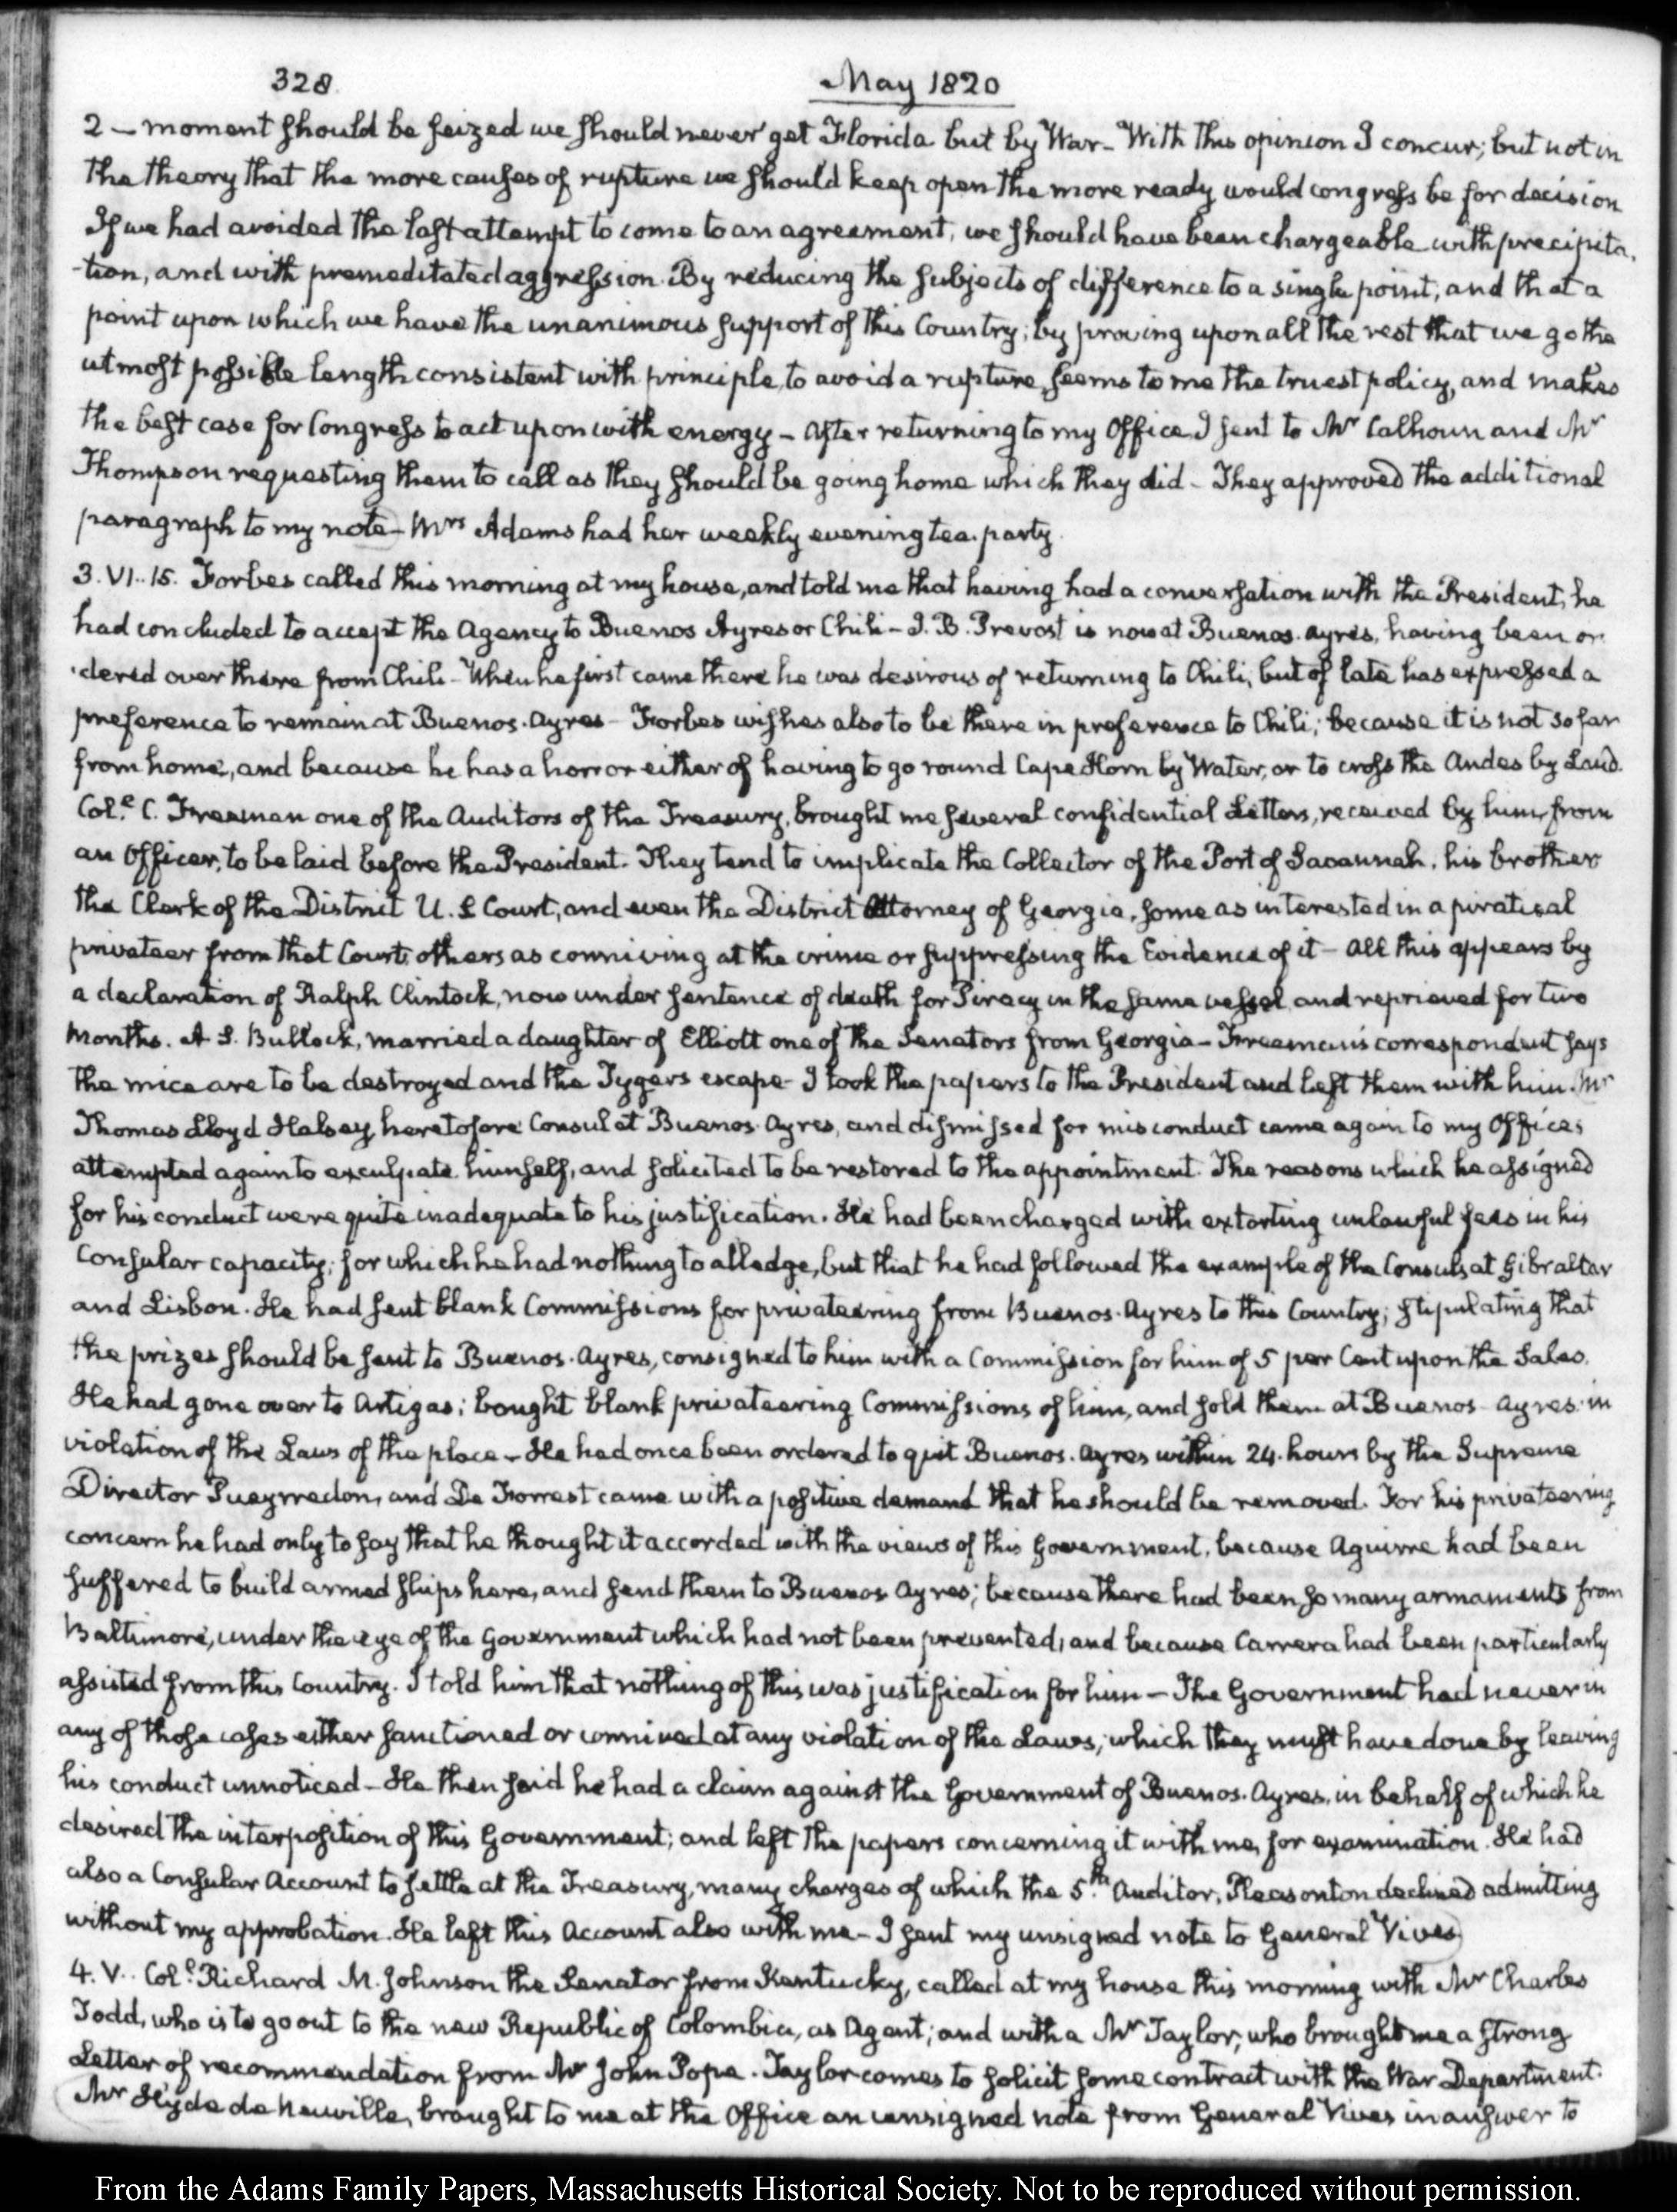 328.
May 1820
2 — moment should be seized we should never get Florida but by War — With this opinion I concur; but not in
the theory that the more causes of rupture we should keep open the more ready would congress be for decision
If we had avoided the last attempt to come to an agreement, we should have been chargeable with precipita-
-tion, and with premeditated aggression. By reducing the subjects of difference to a single point, and that a
point upon which we have the unanimous support of this Country; by proving upon all the rest that we go the
utmost possible length consistent with principle, to avoid a rupture, seems to me the truest policy, and makes
the best case for Congress to act upon with energy — After returning to my Office I sent to Mr Calhoun and Mr
Thompson requesting them to call as they should be going home which they did — They approved the additional
paragraph to my note — Mrs Adams had her weekly evening tea party.
3. VI. 15. Forbes called this morning at my house, and told me that having had a conversation with the President, he
had concluded to accept the Agency to Buenos Ayres or Chili — J. B. Prevost is now at Buenos Ayres, having been or-
-dered over there from Chili — When he first came there he was desirous of returning to Chili, but of late has expressed a
preference to remain at Buenos-Ayres — Forbes wishes also to be there in preference to Chili; because it is not so far
from home, and because he has a horror either of having to go round Cape Horn by Water, or to cross the Andes by Land.
Col.e C. Freeman one of the Auditors of the Treasury, brought me several confidential Letters, received by him, from
an Officer, to be laid before the President. They tend to implicate the Collector of the Port of Savannah, his brother
the Clerk of the District U. S Court, and even the District Attorney of Georgia, some as interested in a piratical
privateer from that Court; others as conniving at the crime or suppressing the Evidence of it — All this appears by
a declaration of Ralph Clintock, now under sentence of death for Piracy in the same vessel, and reprieved for two
months. A S. Bullock, married a daughter of Elliott one of the Senators from Georgia — Freeman's correspondent says
the mice are to be destroyed and the Tygers escape — I took the papers to the President and left them with him. Mr
Thomas Lloyd Halsey, heretofore Consul at Buenos Ayres, and dismissed for misconduct came again to my Office;
attempted again to exculpate himself, and solicited to be restored to the appointment. The reasons which he assigned
for his conduct were quite inadequate to his justification. He had been charged with extorting unlawful fees in his
Consular capacity; for which he had nothing to alledge, but that he had followed the example of the Consuls at Gibraltar
and Lisbon. He had sent blank Commissions for privateering from Buenos-Ayres to this Country; stipulating that
the prizes should be sent to Buenos-Ayres, consigned to him with a Commission for him of 5 per Cent upon the Sales.
He had gone over to Artigas; bought blank privateering Commissions of him, and sold them at Buenos-Ayres in
violation of the Laws of the place — He had once been ordered to quit Buenos-Ayres within 24 hours by the Supreme
Director Pueyrredon, and De Forrest came with a positive demand that he should be removed. For his privateering
concern he had only to say that he thought it accorded with the views of this Government, because Aguirre had been
suffered to build armed ships here, and send them to Buenos Ayres; because there had been so many armaments from
Baltimore, under the eye of the Government which had not been prevented, and because Carrera had been particularly
assisted from this Country. I told him that nothing of this was justification for him — The Government had never in
any of those cases either sanctioned or connived at any violation of the Laws, which they must have done by leaving
his conduct unnoticed — He then said he had a claim against the Government of Buenos-Ayres, in behalf of which he
desired the interposition of this Government; and left the papers concerning it with me, for examination. He had
also a Consular Account to settle at the Treasury, many charges of which the 5.th Auditor, Pleasonton declined admitting
without my approbation. He left this Account also with me — I sent my unsigned note to General Vives
4. V. Col.e Richard M. Johnson the Senator from Kentucky, called at my house this morning with Mr Charles
Todd, who is to go out to the new Republic of Colombia, as Agent; and with a Mr Taylor, who brought me a strong
Letter of recommendation from Mr John Pope. Taylor comes to solicit some contract with the War Department.
Mr Hyde de Neuville, brought to me at the Office an unsigned note from General Vives in answer to
From the Adams Family Papers, Massachusetts Historical Society. Not to be reproduced without permission.